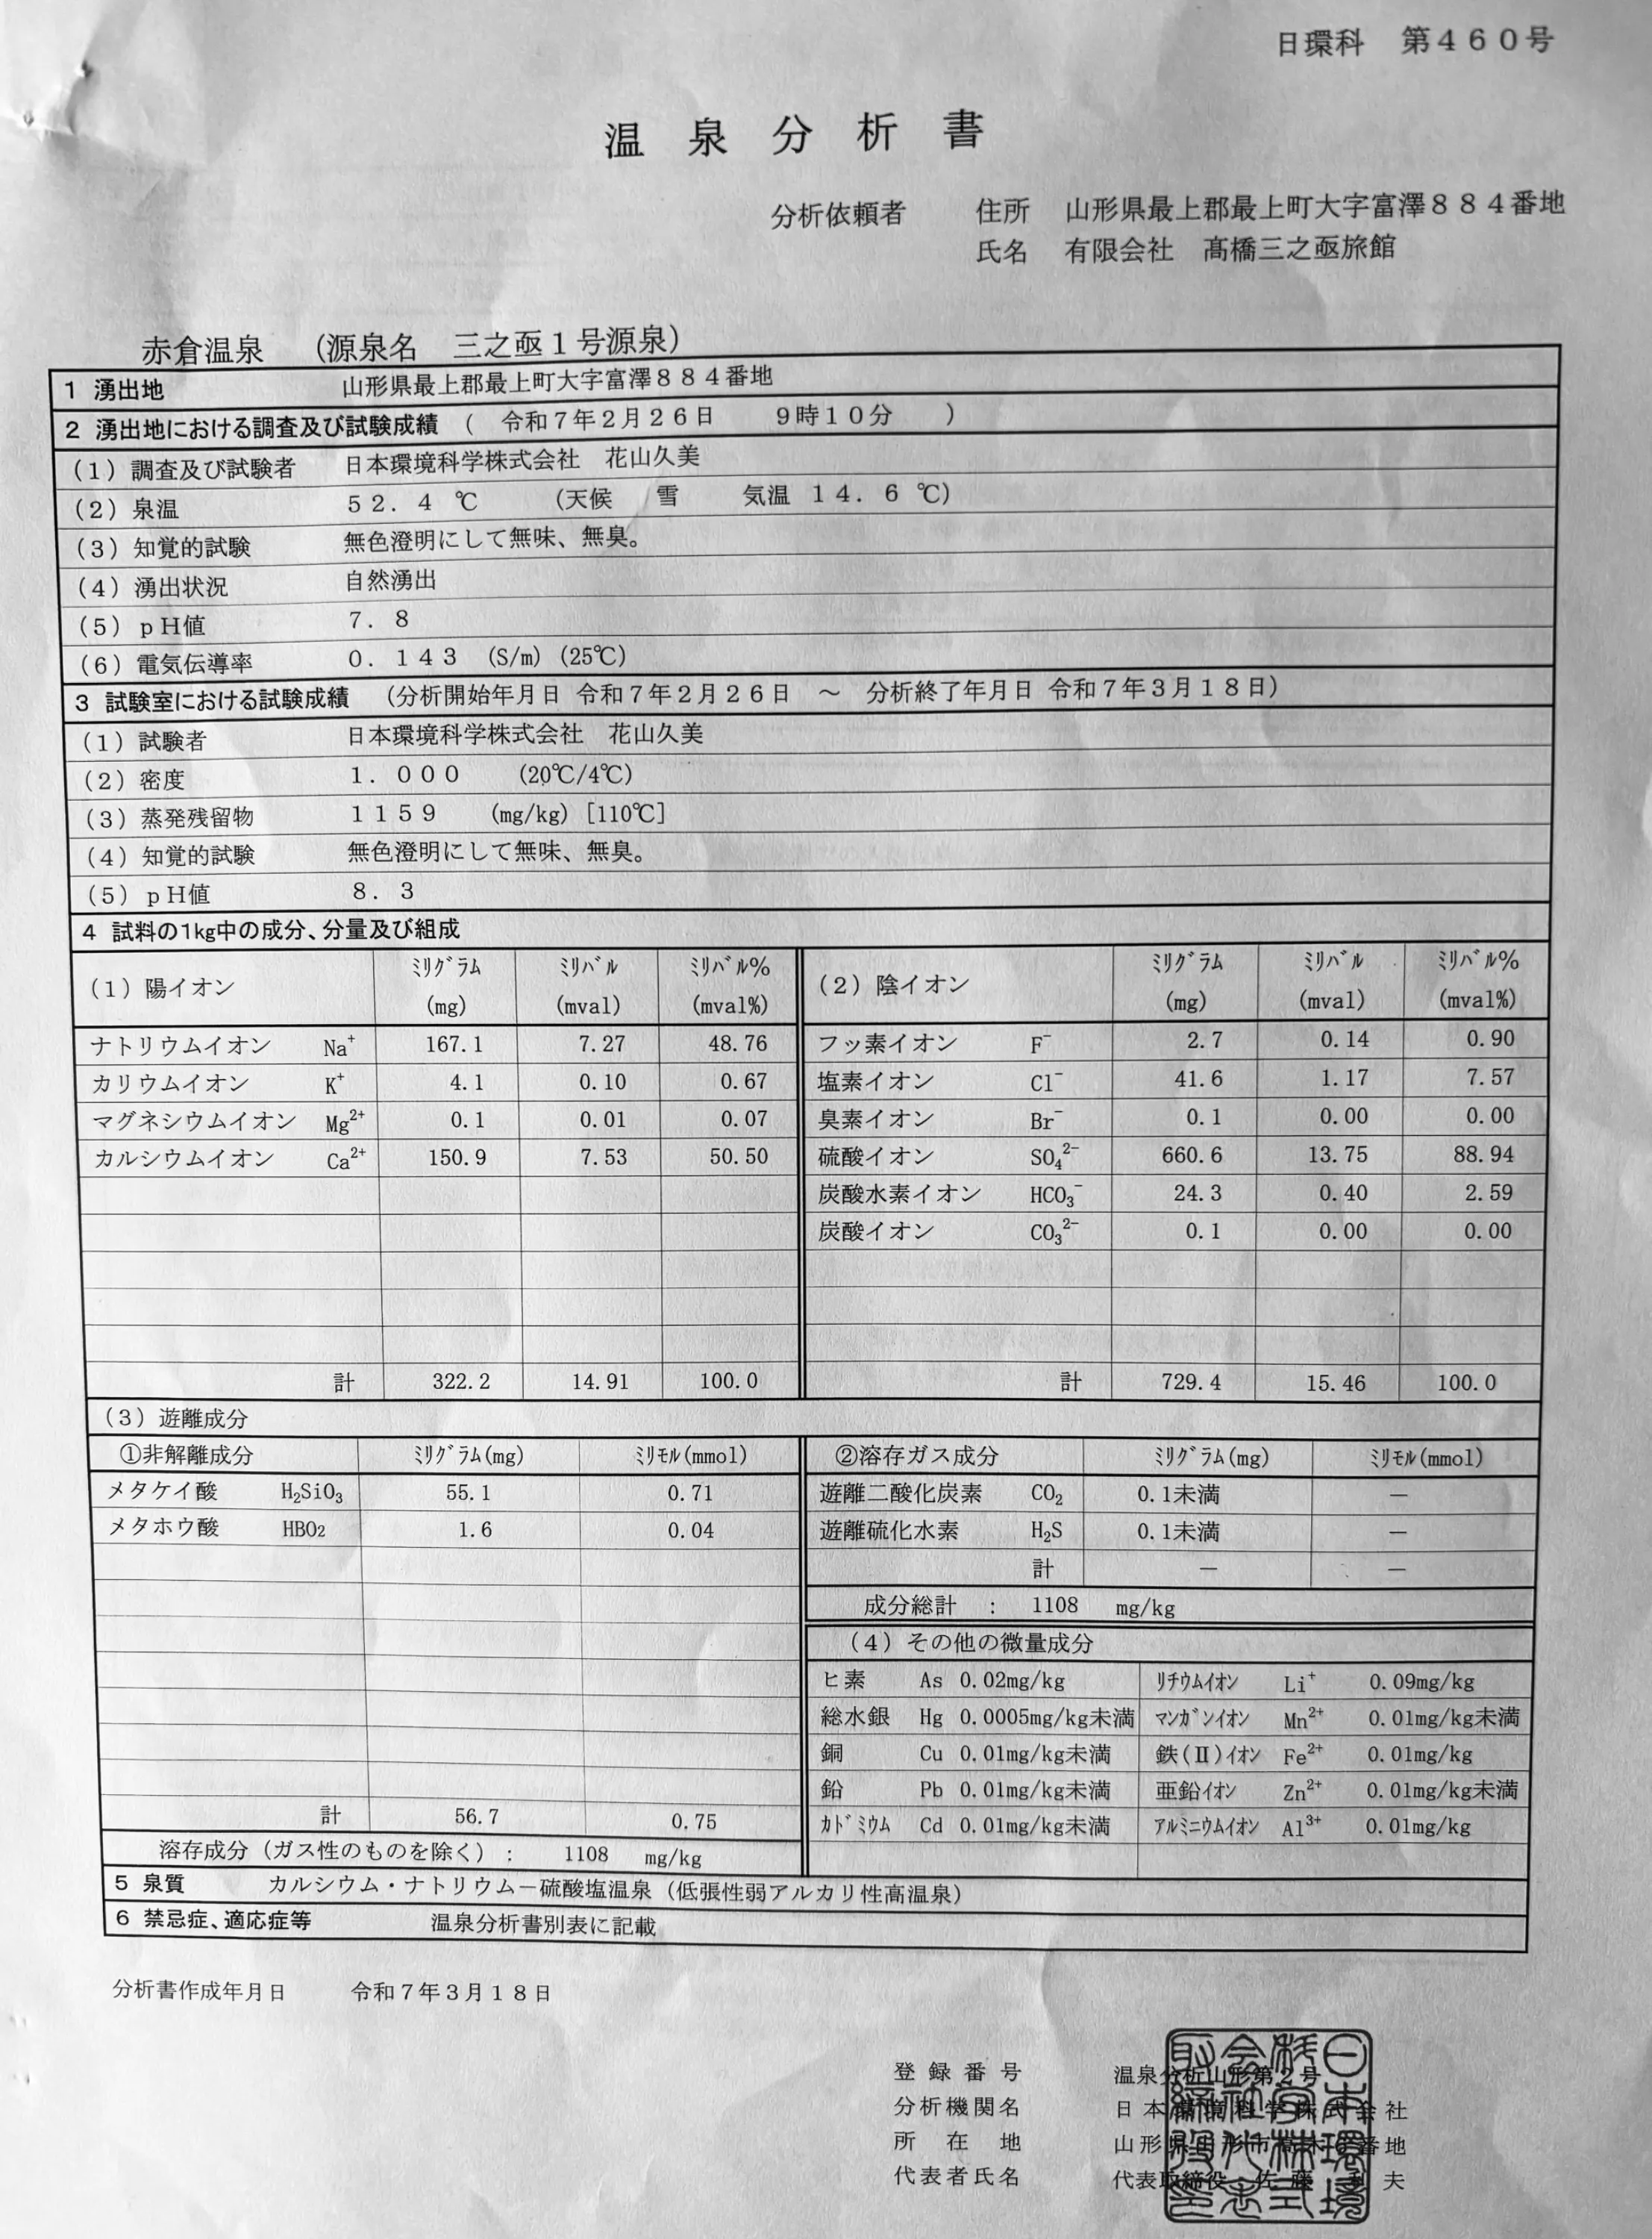 日環科　第４６０号
温泉分析書
分析依頼者　住所　山形県最上郡最上町大字富澤８８４番地
氏名　有限会社　髙橋三之亟旅館
赤倉温泉　（源泉名　三之亟１号源泉）
1 湧出地　山形県最上郡最上町大字富澤８８４番地
2 湧出地における調査及び試験成績（　令和７年２月２６日　９時１０分　）
（1）調査及び試験者　日本環境科学株式会社　花山久美
（2）泉温　５２．４ ℃　（天候　雪　気温 １４．６ ℃）
（3）知覚的試験　無色澄明にして無味、無臭。
（4）湧出状況　自然湧出
（5）ｐＨ値　７．８
（6）電気伝導率　０．１４３　(S/m)（25℃）
3 試験室における試験成績　（分析開始年月日 令和７年２月２６日　～　分析終了年月日 令和７年３月１８日）
（1）試験者　日本環境科学株式会社　花山久美
（2）密度　１．０００　（20℃/4℃）
（3）蒸発残留物　１１５９　(mg/kg)［110℃］
（4）知覚的試験　無色澄明にして無味、無臭。
（5）ｐＨ値　８．３
4 試料の1kg中の成分、分量及び組成
（1）陽イオン　ﾐﾘｸﾞﾗﾑ (mg)　ﾐﾘﾊﾞﾙ (mval)　ﾐﾘﾊﾞﾙ% (mval%)　（2）陰イオン　ﾐﾘｸﾞﾗﾑ (mg)　ﾐﾘﾊﾞﾙ (mval)　ﾐﾘﾊﾞﾙ% (mval%)
ナトリウムイオン　Na⁺　167.1　7.27　48.76　フッ素イオン　F⁻　2.7　0.14　0.90
カリウムイオン　K⁺　4.1　0.10　0.67　塩素イオン　Cl⁻　41.6　1.17　7.57
マグネシウムイオン　Mg²⁺　0.1　0.01　0.07　臭素イオン　Br⁻　0.1　0.00　0.00
カルシウムイオン　Ca²⁺　150.9　7.53　50.50　硫酸イオン　SO₄²⁻　660.6　13.75　88.94
炭酸水素イオン　HCO₃⁻　24.3　0.40　2.59
炭酸イオン　CO₃²⁻　0.1　0.00　0.00
計　322.2　14.91　100.0　計　729.4　15.46　100.0
（3）遊離成分
①非解離成分　ﾐﾘｸﾞﾗﾑ(mg)　ﾐﾘﾓﾙ(mmol)　②溶存ガス成分　ﾐﾘｸﾞﾗﾑ(mg)　ﾐﾘﾓﾙ(mmol)
メタケイ酸　H₂SiO₃　55.1　0.71　遊離二酸化炭素　CO₂　0.1未満　―
メタホウ酸　HBO₂　1.6　0.04　遊離硫化水素　H₂S　0.1未満　―
計　―　―
成分総計　：　1108　mg/kg
（4）その他の微量成分
ヒ素　As　0.02mg/kg　ﾘﾁｳﾑｲｵﾝ　Li⁺　0.09mg/kg
総水銀　Hg　0.0005mg/kg未満　ﾏﾝｶﾞﾝｲｵﾝ　Mn²⁺　0.01mg/kg未満
銅　Cu　0.01mg/kg未満　鉄(Ⅱ)ｲｵﾝ　Fe²⁺　0.01mg/kg
鉛　Pb　0.01mg/kg未満　亜鉛ｲｵﾝ　Zn²⁺　0.01mg/kg未満
計　56.7　0.75　ｶﾄﾞﾐｳﾑ　Cd　0.01mg/kg未満　ｱﾙﾐﾆｳﾑｲｵﾝ　Al³⁺　0.01mg/kg
溶存成分（ガス性のものを除く）：　1108　mg/kg
5 泉質　カルシウム・ナトリウム－硫酸塩温泉（低張性弱アルカリ性高温泉）
6 禁忌症、適応症等　温泉分析書別表に記載
分析書作成年月日　令和７年３月１８日
登録番号　温泉分析山形第２号
分析機関名　日本環境科学株式会社
所在地　山形県山形市高木６番地
代表者氏名　代表取締役　佐藤　夫